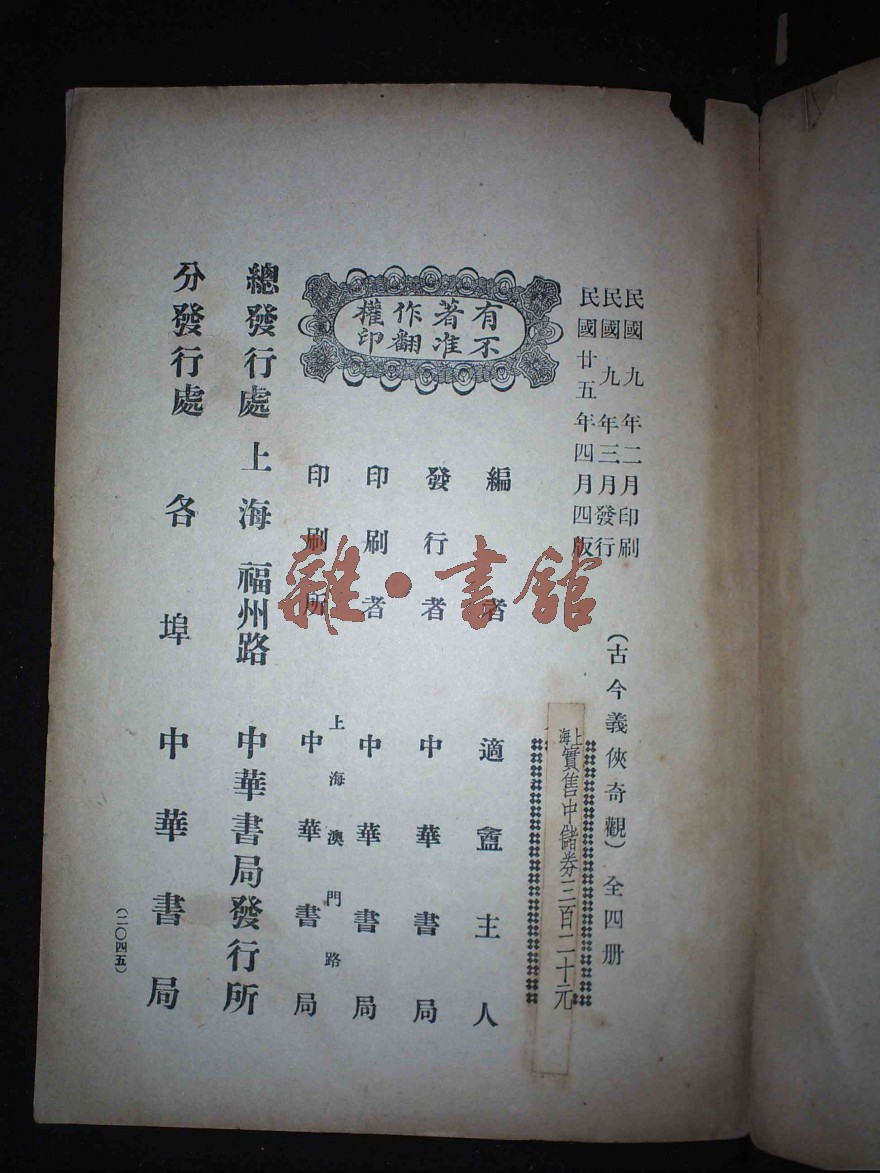 民國九年二月印刷
民國九年三月發行
民國廿五年四月四版
（古今義俠奇觀）全四册
上海實售中儲券三百二十元
有著作權
不准翻印
編者 適盦主人
發行者 中華書局
印刷者 中華書局
印刷所 上海澳門路 中華書局
總發行處 上海福州路 中華書局發行所
分發行處 各埠 中華書局
（二〇四五）
雜·書館